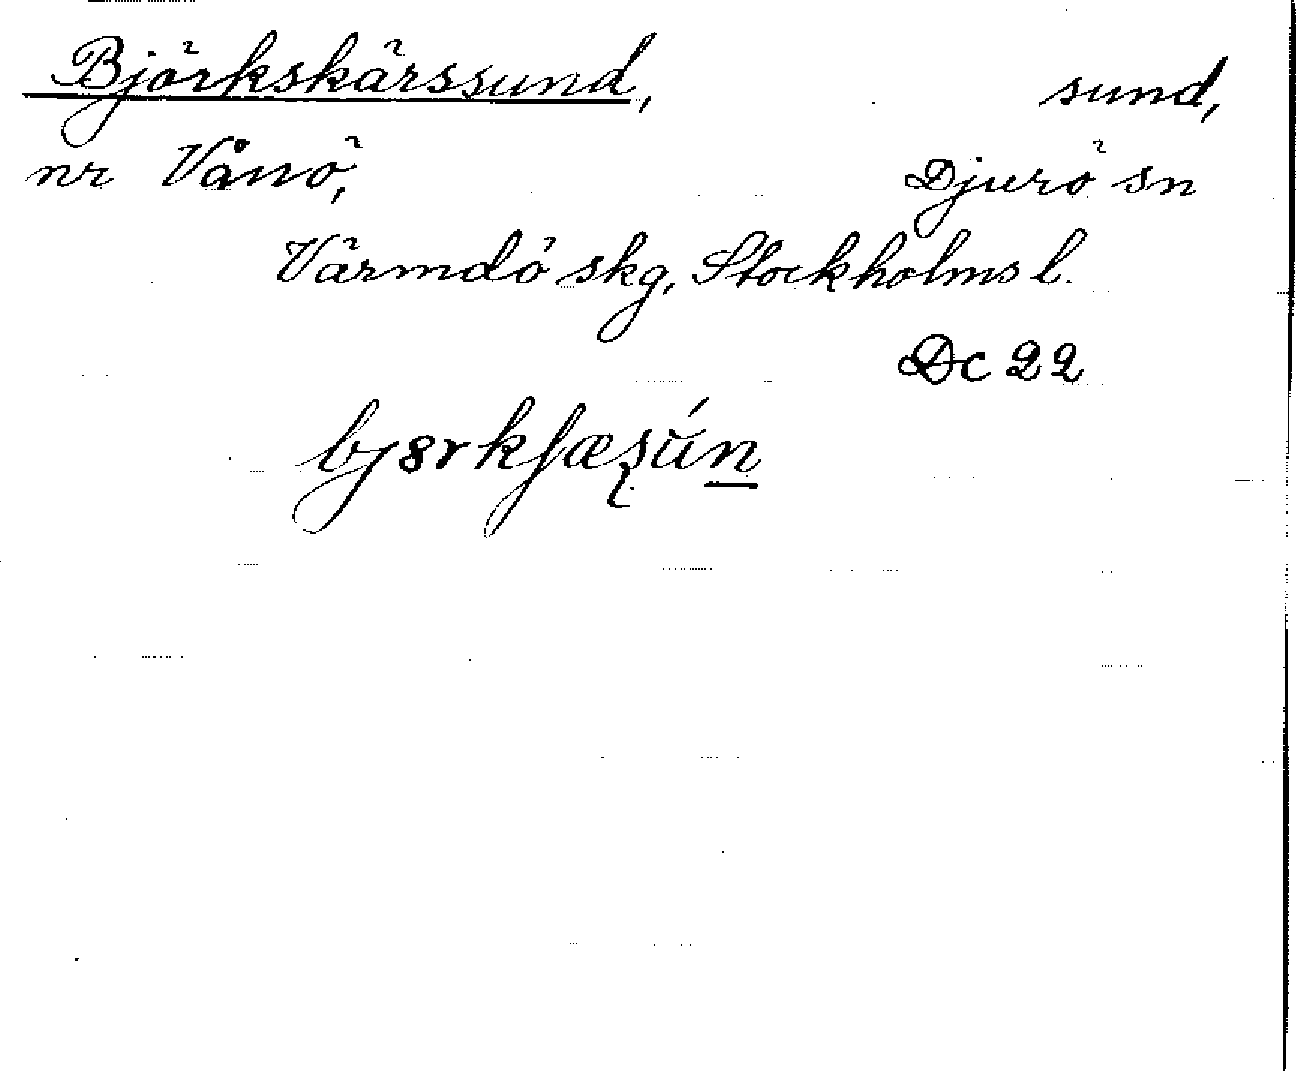 Björkskärssund, sund,
nr Vånö, Djurö sn
Värmdö skg, Stockholms l.
Dc 22